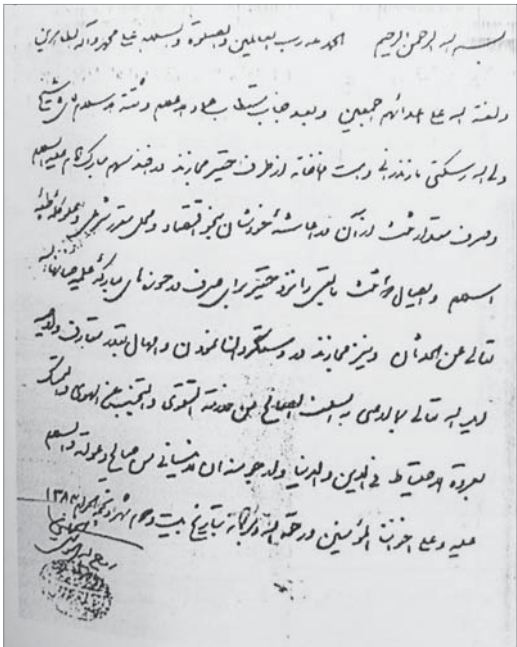 بسم الله الرحمن الرحیم الحمد لله رب العالمین والصلوة والسلام علی محمد وآله الطاهرین
ولعنة الله علی اعدائهم اجمعین وبعد جناب مستطاب عماد الاعلام وثقة الاسلام آقای شیخ
ولی الله رستمی مازندرانی دامت افاضاته از طرف حقیر مجازند در اخذ سهم مبارک امام علیه السلام
وصرف مقدار ثلث از آن در اعاشه خودشان بنحو اقتصاد ومحل مقرر شرعی
السلام وایصال دو ثلث باقی را نزد حقیر برای صرف در حوزه‌های مبارکه علمیه صانها الله
تعالی عن الحدثان ونیز مجازند در دستگردان نمودن وامهال بقدر متعارف
ایده الله تعالی بما اوصی به السلف الصالح من ملازمة التقوی والتجنب عن الهوی والتمسک
بعروة الاحتیاط فی الدین والدنیا وارجو منه ان لا ینسانی من صالح دعواته والسلام
علیه وعلی اخواننا المؤمنین ورحمة الله وبرکاته بتاریخ بیست و شهر ذیحجة الحرام ۱۳۸۳